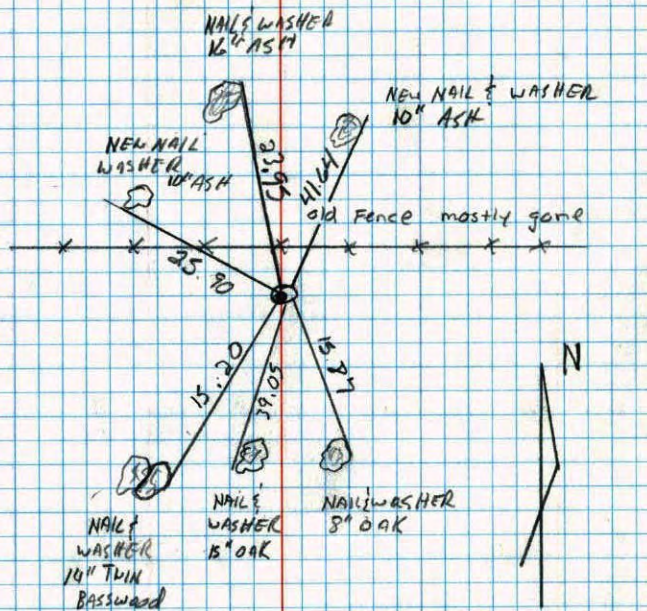 NAIL & WASHER
16" ASH
NEW NAIL & WASHER
10" ASH
NEW NAIL
WASHER
10" ASH
23.95
41.64
old Fence mostly gone
25.90
15.20
39.05
15.87
N
NAIL &
WASHER
14" TWIN
BASSWOOD
NAIL &
WASHER
15" OAK
NAIL & WASHER
8" OAK